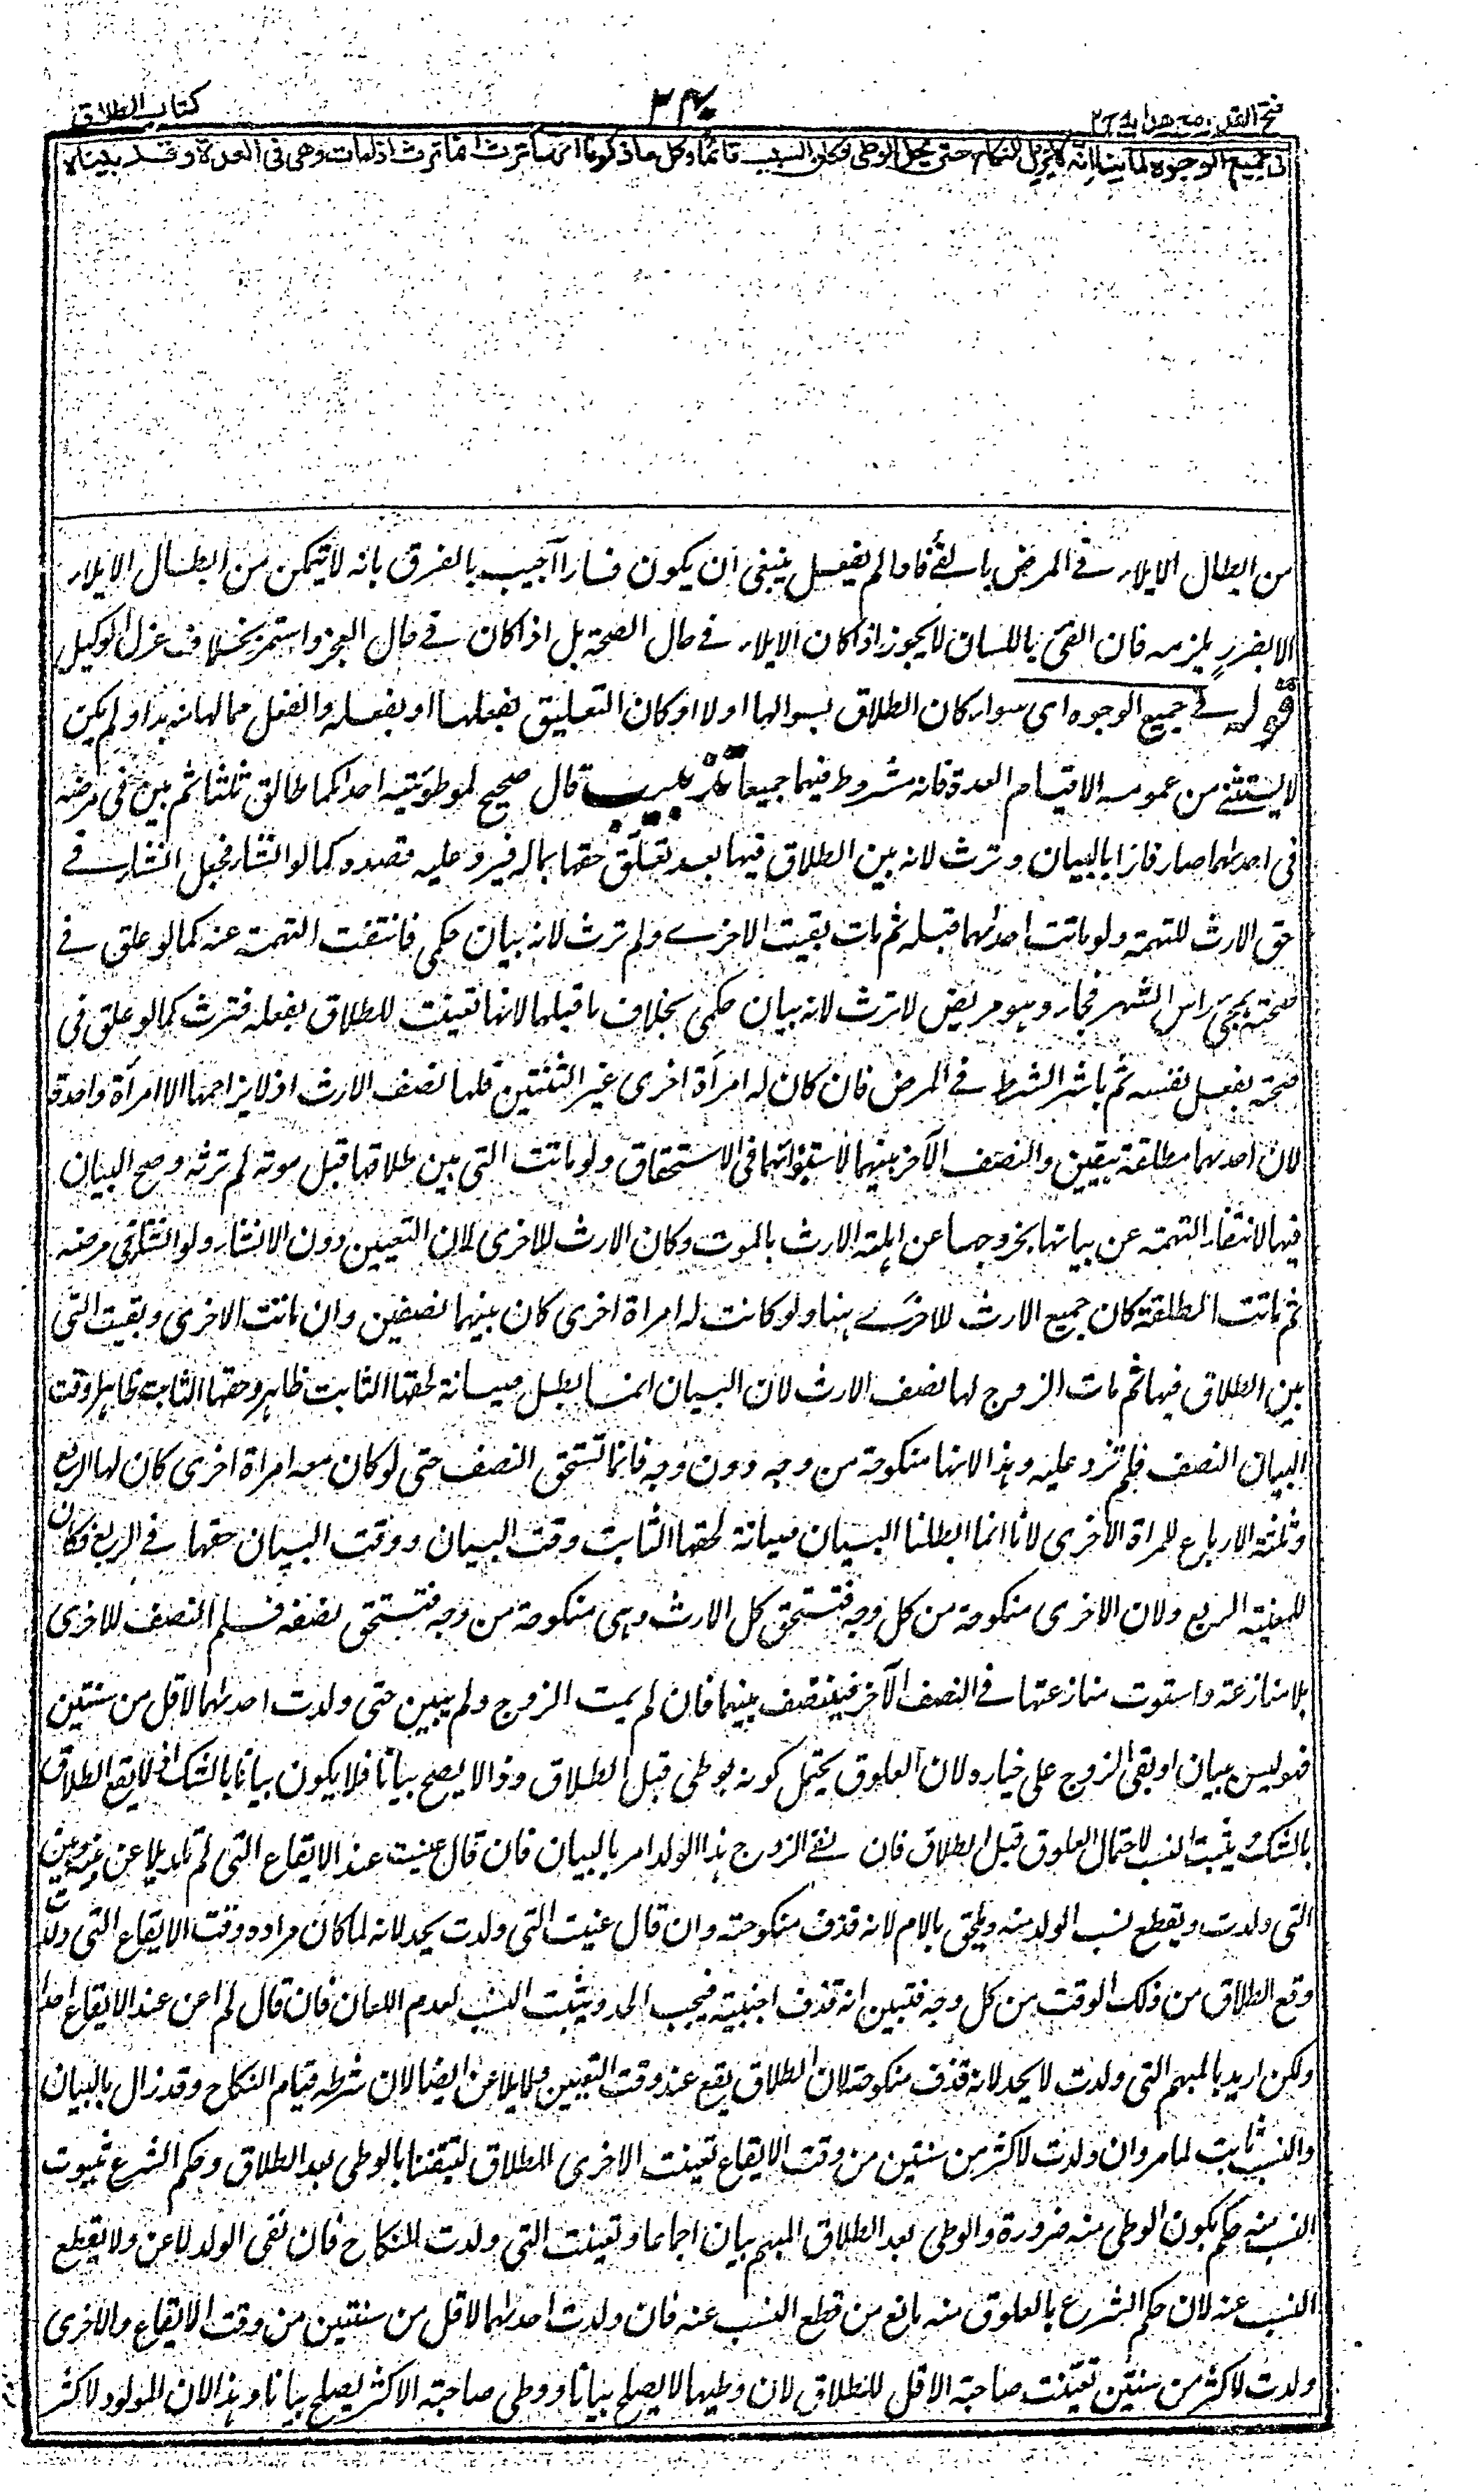 فتح القدير مع هدايه ج٢
٣٤٠
كتاب الطلاق
في جميع الوجوه لما بينا انه لا يزيل النكاح حتى يحل الوطي فكان السبب قائما وكل ما ذكرنا انها ترث انما ترث اذا مات وهي في العدة وقد بيناه
من ابطال الايلاء في المرض بالفئ فاذا لم يفعل ينبغي ان يكون فارا اجيب بالفرق بانه لا يتمكن من ابطال الايلاء
الا بضرر يلزمه فان الفئ باللسان لا يجوز اذا كان الايلاء في حال الصحة بل اذا كان في حال العجز واستمر بخلاف عزل الوكيل
قوله في جميع الوجوه اى سواء كان الطلاق بسوالها اولا او كان التعليق بفعلها او بفعله والفعل مما لها منه بد او لم يكن
لا يستثنى من عمومه الا قيام العدة فانه مشروط فيها جميعا تذنيب قال صحيح لموطوئتيه احداكما طالق ثلثا ثم بين في مرضه
في احدىهما صار فارا بالبيان وترث لانه بين الطلاق فيها بعد تعلق حقها بماله فيرد عليه قصده كما لو انشاء فجعل انشاء في
حق الارث للتهمة ولو ماتت احدىهما قبله ثم مات بقيت الاخرى ولم ترث لانه بيان حكمي فانتفت التهمة عنه كما لو علق في
صحته بمجئ راس الشهر فجاء وهو مريض لا ترث لانه بيان حكمي بخلاف ما قبلها لانها تعينت للطلاق بفعله فترث كما لو علق في
صحته بفعل نفسه ثم باشر الشرط في المرض فان كان له امرأة اخرى غير الثنتين فلها نصف الارث اذ لا يزاحمها الا امرأة واحدة
لان احدىهما مطلقة بيقين والنصف الآخر بينهما لاستوائهما في الاستحقاق ولو ماتت التي بين طلاقها قبل موته لم ترثه وصح البيان
فيها لانتفاء التهمة عن بيانها بخروجها عن اهلية الارث بالموت وكان الارث للاخرى لان التعيين دون الانشاء ولو انشاء في مرضه
ثم ماتت المطلقة كان جميع الارث للاخرى هنا ولو كانت له امراة اخرى كان بينهما نصفين وان ماتت الاخرى وبقيت التي
بين الطلاق فيها ثم مات الزوج لها نصف الارث لان البيان انما بطل صيانة لحقها الثابت ظاهرا وحقها الثابت ظاهرا وقت
البيان النصف فلم تزد عليه وهذا لانها منكوحة من وجه دون وجه فانما تستحق النصف حتى لو كان معه امراة اخرى كان لها الربع
وثلثة الارباع للمراة الاخرى لانا انما ابطلنا البيان صيانة لحقها الثابت وقت البيان ووقت البيان حقها في الربع فكان
للمعينة الربع ولان الاخرى منكوحة من كل وجه فتستحق كل الارث وهي منكوحة من وجه فتستحق نصفه فسلم النصف للاخرى
بلا منازعة واستوت منازعتها في النصف الآخر فينتصف بينهما فان لم يمت الزوج ولم يبين حتى ولدت احدىهما لاقل من سنتين
فهو ليس ببيان او بقى الزوج على خياره لان العلوق يحتمل كونه بوطي قبل الطلاق وذا لا يصلح بيانا فلا يكون بيانا بالشك اذ لا يقع الطلاق
بالشك ويثبت النسب لاحتمال العلوق قبل الطلاق فان نفى الزوج هذا الولد امر بالبيان فان قال عنيت عند الايقاع التي لم تلد يلاعن بينه وبين
التي ولدت ويقطع نسب الولد منه ويلحق بالام لانه قذف منكوحته وان قال عنيت التي ولدت يحد لانه لما كان مراده وقت الايقاع التي ولدت
وقع الطلاق من ذلك الوقت من كل وجه فتبين انه قذف اجنبية فيجب الحد ويثبت النسب لعدم اللعان فان قال لم اعن عند الايقاع احدا
ولكن اريد بالمبهم التي ولدت لا يحد لانه قذف منكوحة لان الطلاق يقع عند وقت التعيين ولا يلاعن ايضا لان شرطه قيام النكاح وقد زال بالبيان
والنسب ثابت لما مر وان ولدت لاكثر من سنتين من وقت الايقاع تعينت الاخرى للطلاق لتيقننا بالوطي بعد الطلاق وحكم الشرع بثبوت
النسب منه حكم بكون الوطي منه ضرورة والوطي بعد الطلاق المبهم بيان اجماعا وتعينت التي ولدت للنكاح فان نفى الولد لاعن ولا يقطع
النسب عنه لان حكم الشرع بالعلوق منه مانع من قطع النسب عنه فان ولدت احدىهما لاقل من سنتين من وقت الايقاع والاخرى
ولدت لاكثر من سنتين تعينت صاحبة الاقل للطلاق لان وطيها لا يصلح بيانا ووطي صاحبة الاكثر يصلح بيانا وهذا لان المولود لاكثر